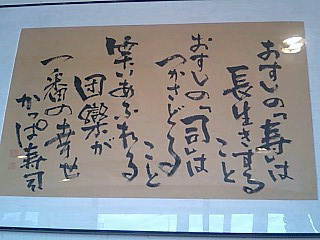 おすしの「寿」は
長生きする
こと
おすしの「司」は
つかさどる
こと
楽いあふれる
団欒が
一番の幸せ
かっぱ寿司